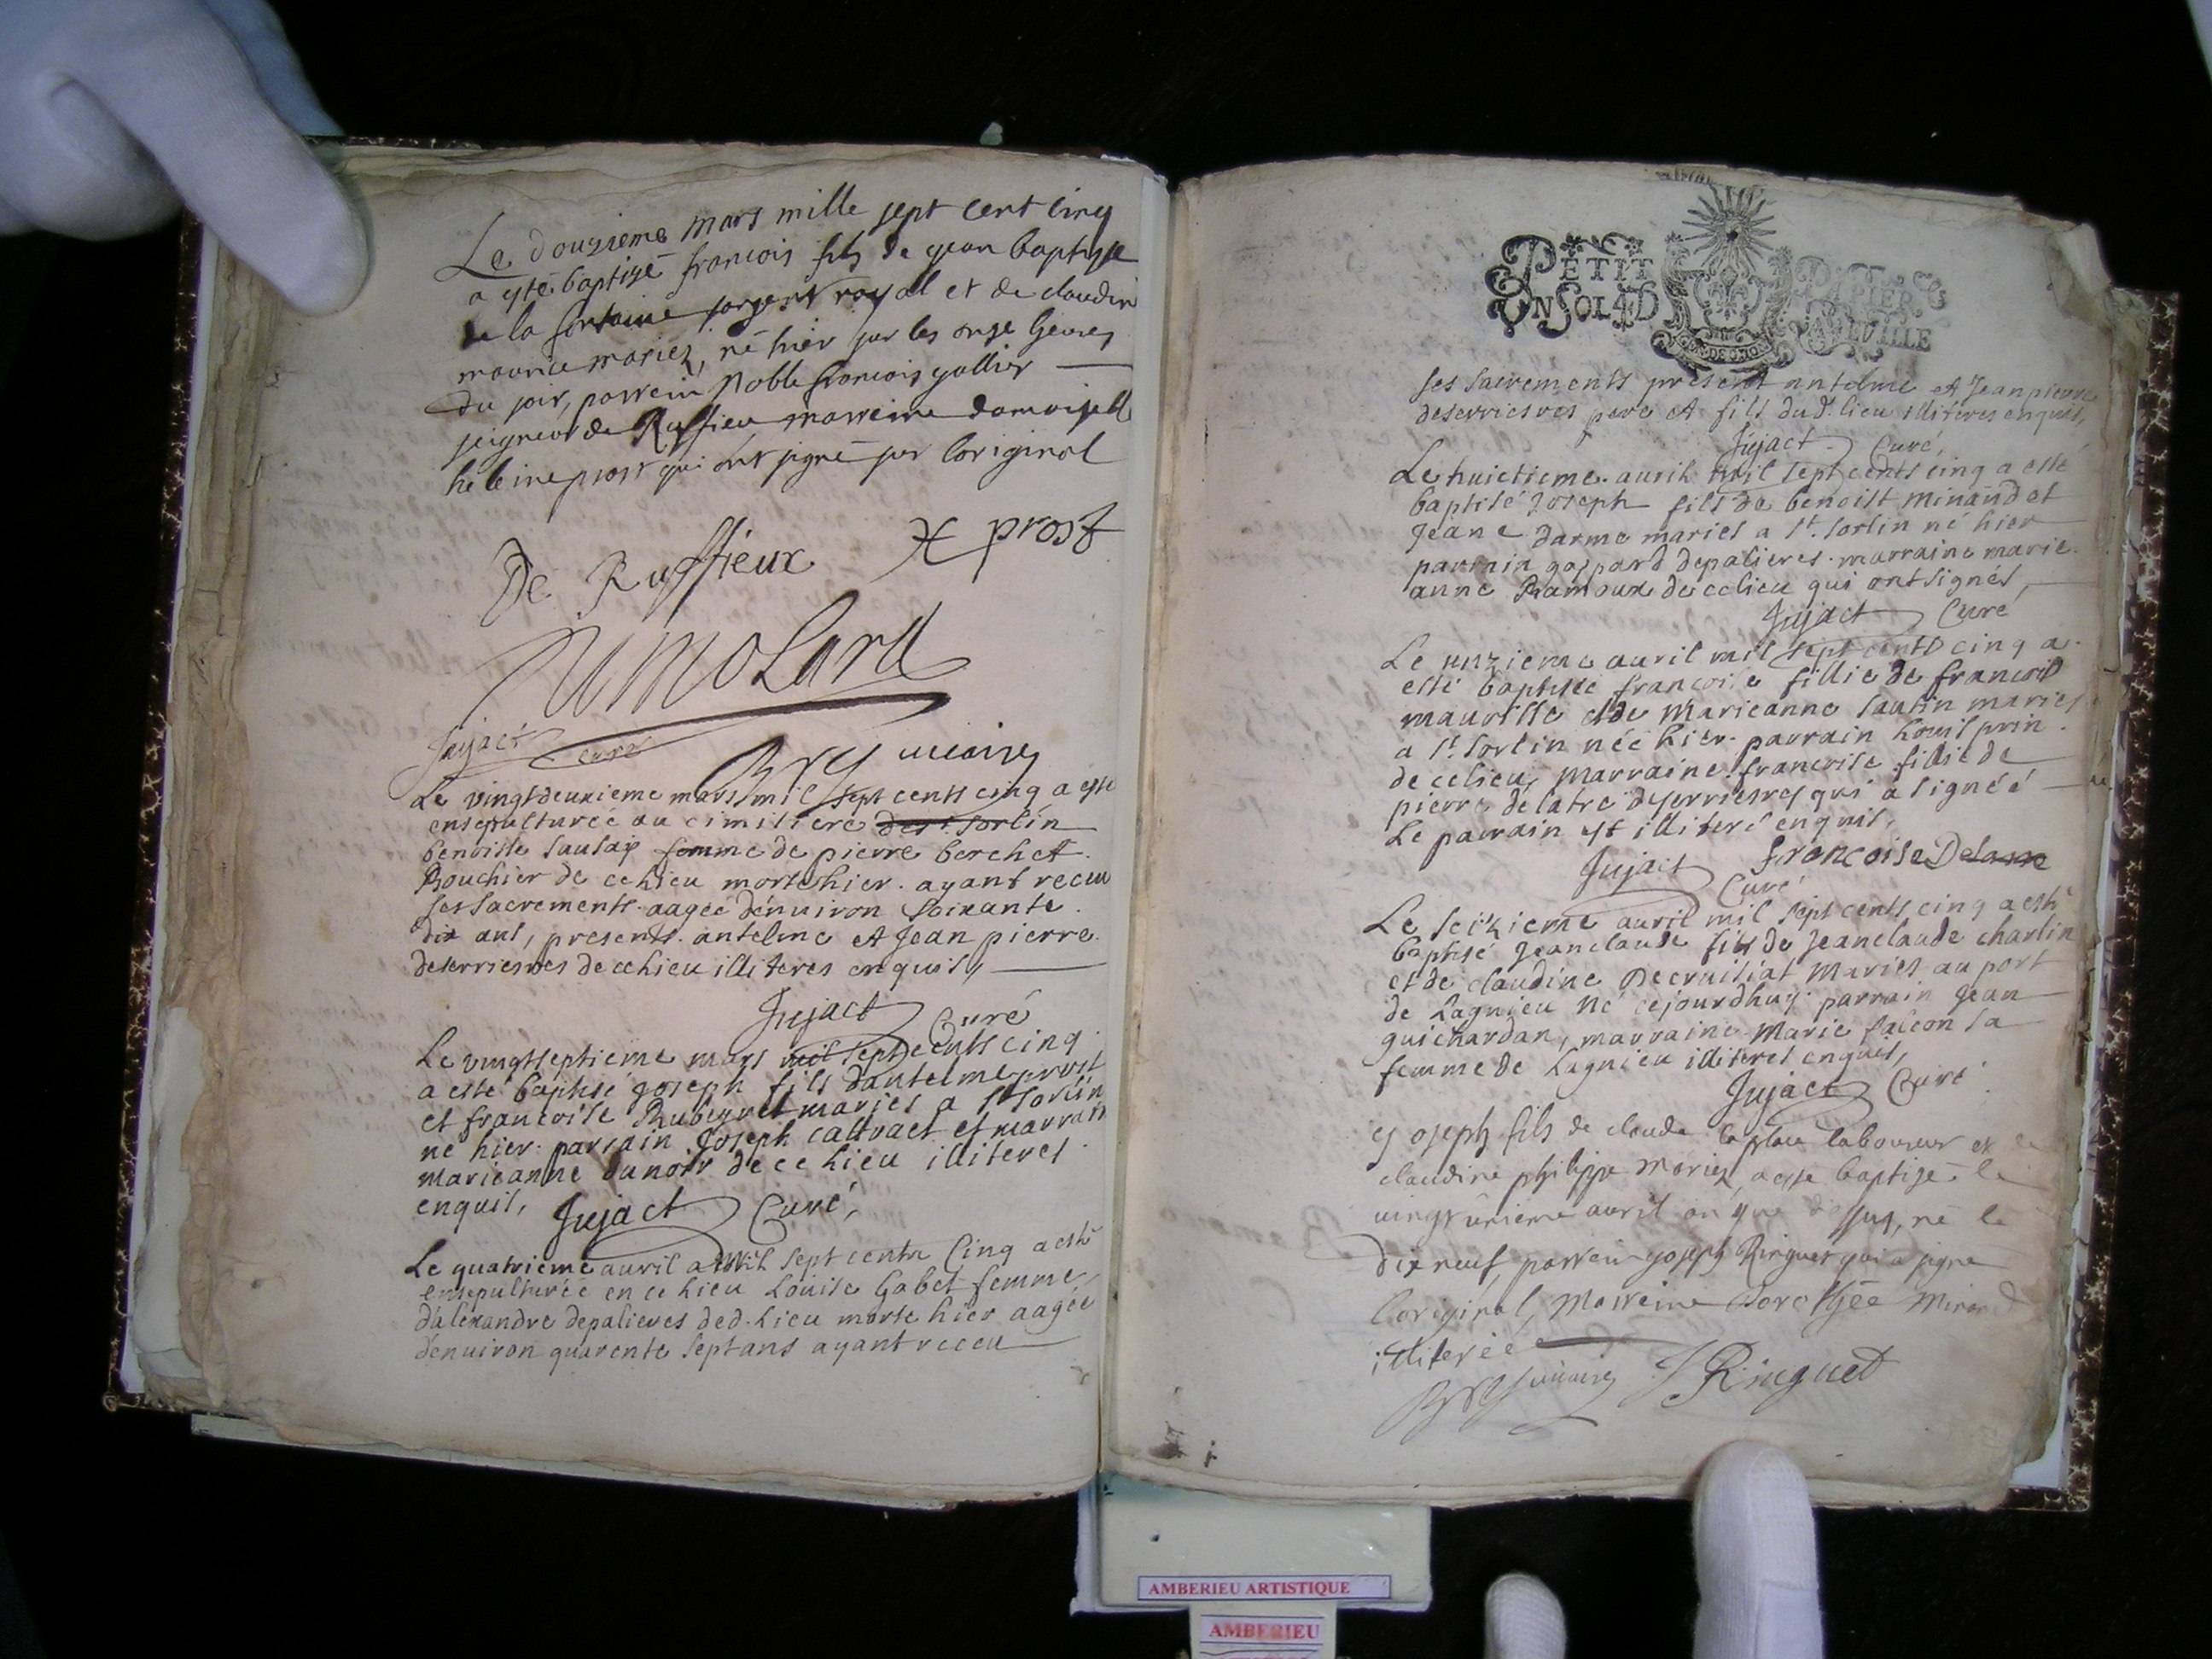 Le douzieme mars mille sept cent cinq
a esté baptizé francois fils de jean baptiste
de la fontaine sargent royal et de claudine
mauricemariez, né hier sur les onze heures
du soir, parrein Noble francois gallier
seigneur de Ruffieu marreine damoiselle
heleine prost qui ont signé sur loriginal
De Ruffieux H prost
Molard
Jujact curé
vicaire
Le vingtdeuxieme mars mil sept cents cinq a este
ensepulturée au cimitiere de st sorlin
benoiste femme de pierre berchet
Bouchier de ce lieu morte hier. ayant receu
ses sacrements. aagee dénuiron soixante
dix ans, presents. antelme et Jean pierre
deserriesres de ce lieu illiteres enquis,
Jujact Curé
Le vingtseptieme mars mil sept cents cinq
a esté baptisé joseph fils dantelme prost
et francoise mariés a st sorlin
né hier. parrain Joseph et marrain
marieanne dunoir de ce lieu illiteres
enquis, Jujact Curé,
Le quatrieme auril mil sept cents Cinq a esté
ensepulturée en ce lieu Louise Gabet femme
dálexandre depalieres dud. lieu morte hier aagée
dénuiron quarente sept ans ayant receu
PETIT PAPIER
UN SOL 4 D LA FEVILLE
ses sacrements present antelme et Jean pierre
deserriesres pere et fils dud. lieu illiteres enquis,
Jujact Curé,
Le huictieme. auril mil sept cents cinq a esté
baptisé Joseph fils de benoist minand et
Jeane darme mariés a st. sorlin né hier
parrain gaspard depalieres. marraine marie.
anne Ramoux de ce lieu qui ont signés,
Jujact Curé
Le unzieme auril mil sept cents cinq a
esté baptisée francoise fillie de francois
maurisse et de Marieanne sautin mariés
a st. sorlin née hier. parrain Louis prin
de ce lieu, marraine francoise fillie de
pierre delatre deserriesres qui a signéé
Le parrain est illiteré enquis,
Jujact Curé francoise Delatre
Le seizieme auril mil sept cents cinq a esté
baptisé Jeanclaude fils de Jeanclaude charlin
et de claudine Decruisiat mariés au port
de Lagnieu né cejourdhuy. parrain Jean
guichardan, marraine Marie falcon sa
femme de Lagnieu illiteres enquis,
Jujact Curé
Joseph fils de claude laplace laboureur et de
claudine philippe mariez, a esté baptizé le
vingt unieme auril an que dessus, né le
dix neuf, parrein joseph Ringuet qui a signé
loriginal, Marreine dorothée Minand
illiterée
vicaire J Ringuet
AMBERIEU ARTISTIQUE
AMBERIEU